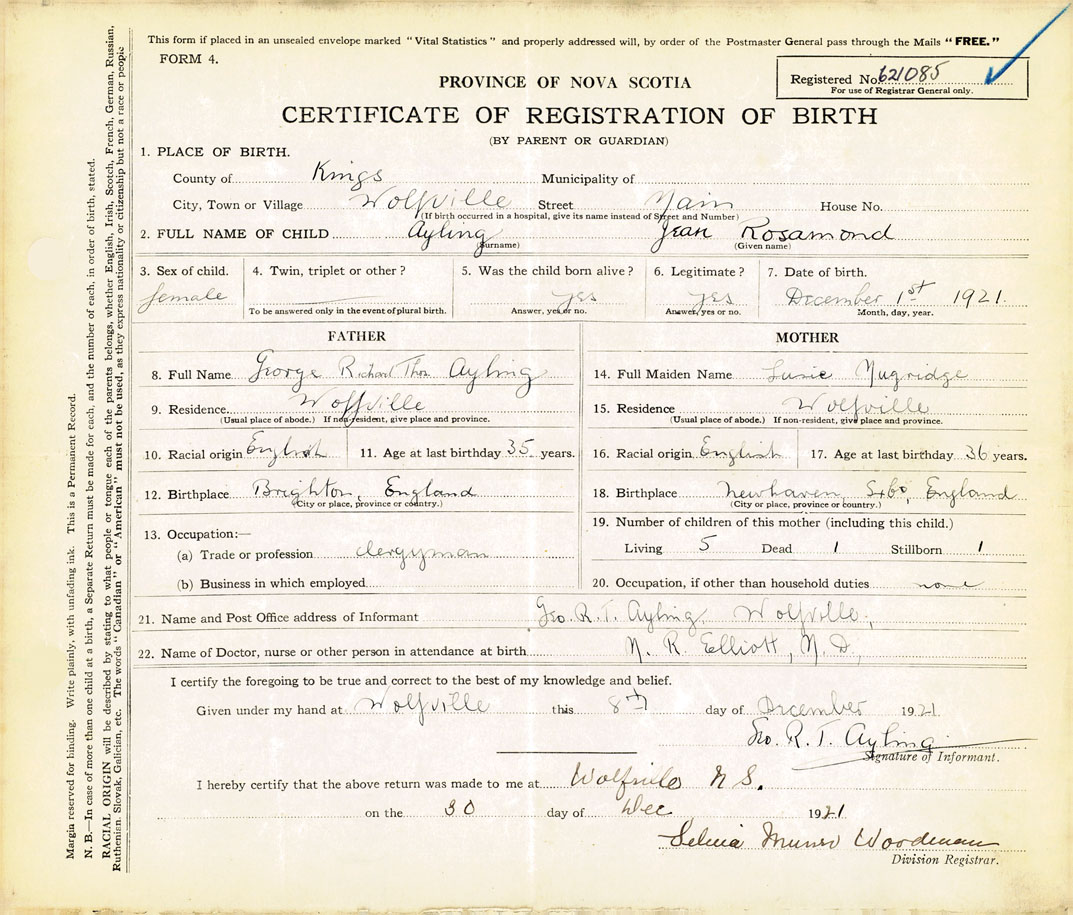 This form if placed in an unsealed envelope marked "Vital Statistics" and properly addressed will, by order of the Postmaster General pass through the Mails "FREE."
FORM 4.
Registered No. 621085
For use of Registrar General only.
PROVINCE OF NOVA SCOTIA
CERTIFICATE OF REGISTRATION OF BIRTH
(BY PARENT OR GUARDIAN)
1. PLACE OF BIRTH.
County of Kings Municipality of
City, Town or Village Wolfville Street Main House No.
(If birth occurred in a hospital, give its name instead of Street and Number)
2. FULL NAME OF CHILD Ayling Jean Rosamond
(Surname) (Given name)
3. Sex of child. 4. Twin, triplet or other? 5. Was the child born alive? 6. Legitimate? 7. Date of birth.
female yes yes December 1st 1921.
To be answered only in the event of plural birth. Answer, yes or no. Answer, yes or no. Month, day, year.
FATHER
8. Full Name George Richard Thos Ayling
9. Residence Wolfville
(Usual place of abode.) If non-resident, give place and province.
10. Racial origin English 11. Age at last birthday 35 years.
12. Birthplace Brighton, England
(City or place, province or country.)
13. Occupation:—
(a) Trade or profession clergyman
(b) Business in which employed
MOTHER
14. Full Maiden Name Susie Mugridge
15. Residence Wolfville
(Usual place of abode.) If non-resident, give place and province.
16. Racial origin English 17. Age at last birthday 36 years.
18. Birthplace Newhaven, England
(City or place, province or country.)
19. Number of children of this mother (including this child.)
Living 5 Dead 1 Stillborn 1
20. Occupation, if other than household duties none
21. Name and Post Office address of Informant Geo. R. T. Ayling, Wolfville,
22. Name of Doctor, nurse or other person in attendance at birth R. Elliott, M.D.,
I certify the foregoing to be true and correct to the best of my knowledge and belief.
Given under my hand at Wolfville this 8th day of December 1921
Geo. R. T. Ayling
Signature of Informant.
I hereby certify that the above return was made to me at Wolfville N S.
on the 30 day of Dec 1921
Munro Woodman
Division Registrar.
Margin reserved for binding. Write plainly, with unfading ink. This is a Permanent Record.
N. B.—In case of more than one child at a birth, a Separate Return must be made for each, and the number of each, in order of birth, stated.
RACIAL ORIGIN will be described by stating to what people or tongue each of the parents belongs, whether English, Irish, Scotch, French, German, Russian,
Ruthenian, Slovak, Galician, etc. The words "Canadian" or "American" must not be used, as they express nationality or citizenship but not a race or people